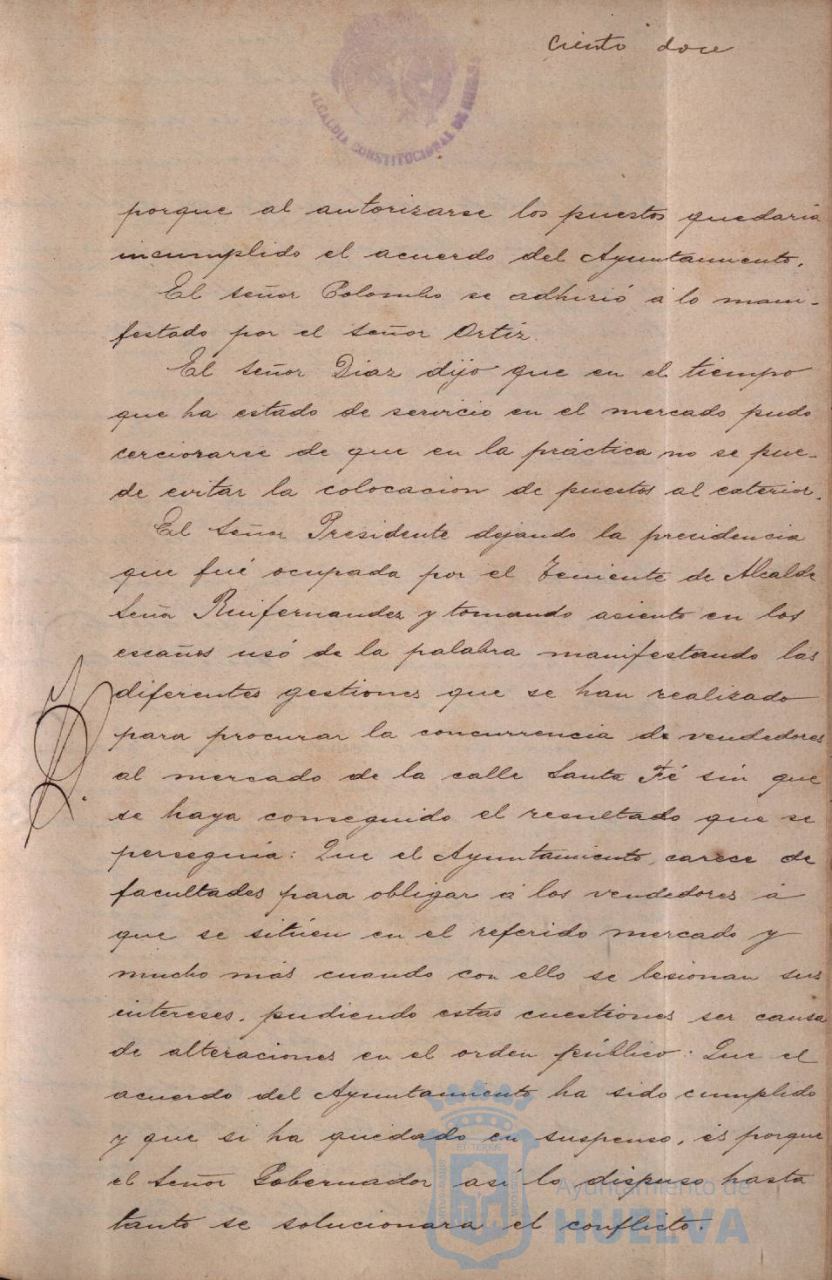 Ciento doce
ALCALDIA CONSTITUCIONAL DE HUELVA
porque al autorizarse los puestos quedaría
incumplido el acuerdo del Ayuntamiento.
El señor Colombo se adhirió á lo mani-
festado por el señor Ortiz.
El señor Diaz dijo que en el tiempo
que ha estado de servicio en el mercado pudo
cerciorarse de que en la práctica no se pue-
de evitar la colocacion de puestos al exterior.
El señor Presidente dejando la presidencia
que fué ocupada por el Teniente de Alcalde
Señor Ruifernandez y tomando asiento en los
escaños usó de la palabra manifestando las
diferentes gestiones que se han realizado
para procurar la concurrencia de vendedores
al mercado de la calle Santa Fé sin que
se haya conseguido el resultado que se
perseguia: Que el Ayuntamiento carece de
facultades para obligar á los vendedores á
que se sitúen en el referido mercado y
mucho más cuando con ello se lesionan sus
intereses, pudiendo estas cuestiones ser causa
de alteraciones en el orden público: Que el
acuerdo del Ayuntamiento ha sido cumplido
y que si ha quedado en suspenso, és porque
el señor Gobernador así lo dispuso hasta
tanto se solucionara el conflicto.
Ayuntamiento de
HUELVA